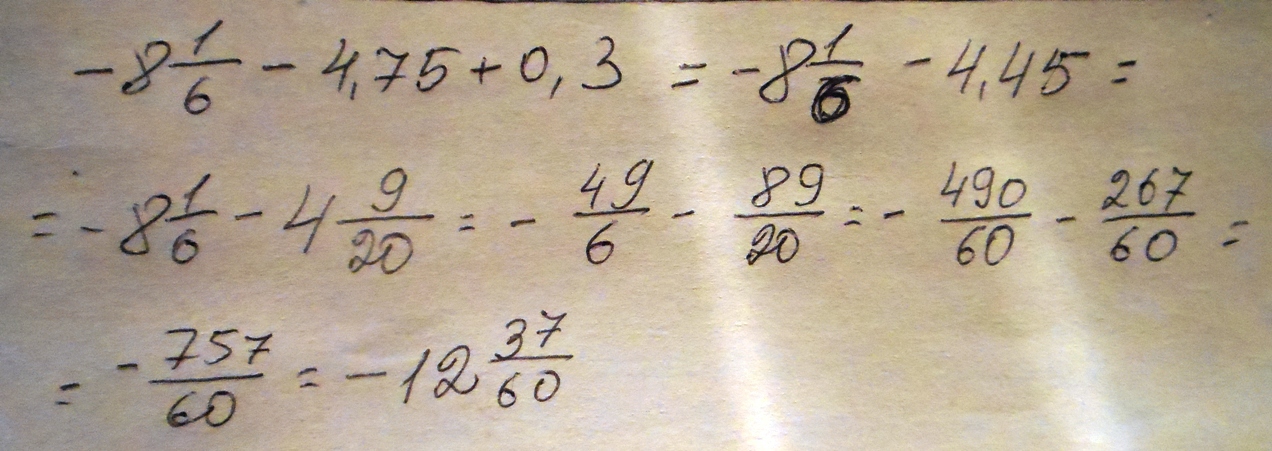 -8 1/6 - 4,75 + 0,3 = -8 1/6 - 4,45 =
= -8 1/6 - 4 9/20 = - 49/6 - 89/20 = - 490/60 - 267/60 =
= - 757/60 = -12 37/60